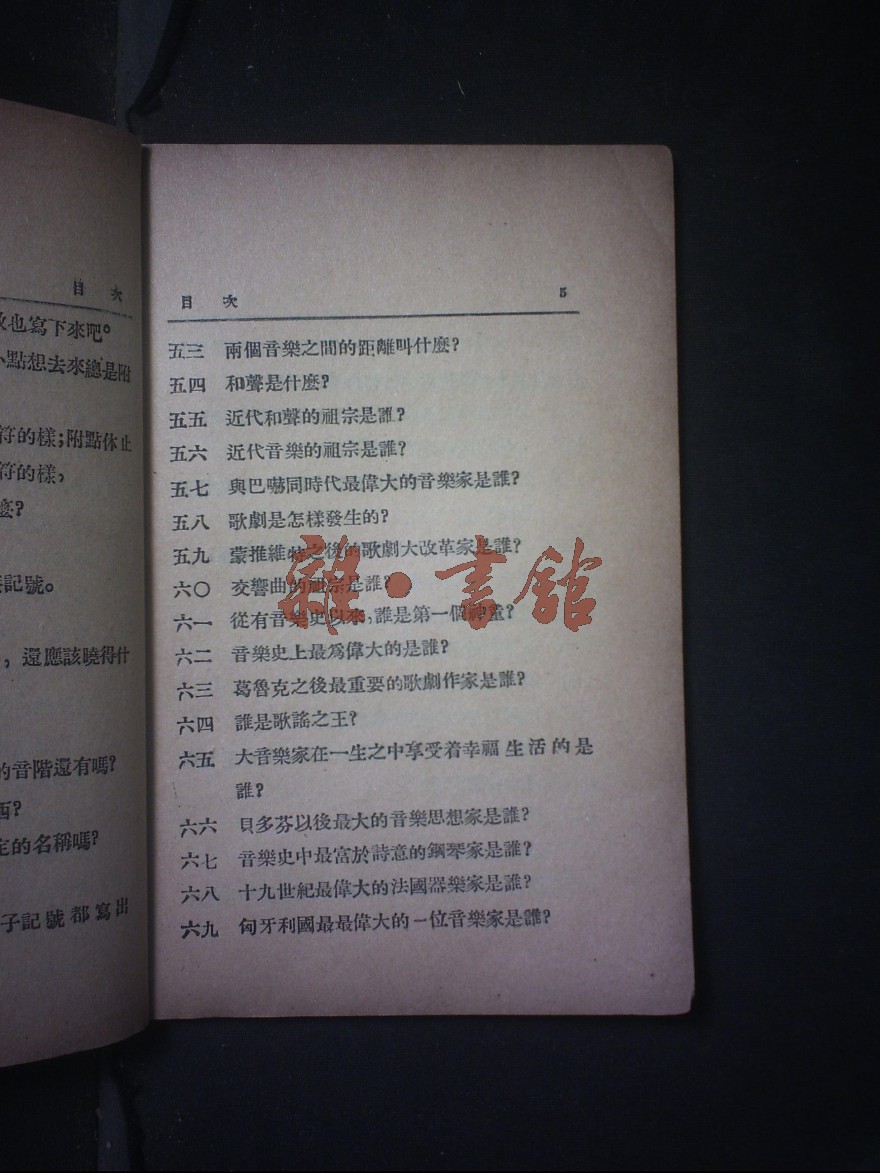 目 次
攷也寫下來吧。
小點想去來總是附
符的樣;附點休止
符的樣,
麼?
記號。
, 還應該曉得什
的音階還有嗎?
西?
定的名稱嗎?
子記號都寫出
目 次 5
五三 兩個音樂之間的距離叫什麼?
五四 和聲是什麼?
五五 近代和聲的祖宗是誰?
五六 近代音樂的祖宗是誰?
五七 與巴嚇同時代最偉大的音樂家是誰?
五八 歌劇是怎樣發生的?
五九 蒙推維特之後的歌劇大改革家是誰?
六〇 交響曲的祖宗是誰?
六一 從有音樂史以來,誰是第一個神童?
六二 音樂史上最爲偉大的是誰?
六三 葛魯克之後最重要的歌劇作家是誰?
六四 誰是歌謠之王?
六五 大音樂家在一生之中享受着幸福生活的是
誰?
六六 貝多芬以後最大的音樂思想家是誰?
六七 音樂史中最富於詩意的鋼琴家是誰?
六八 十九世紀最偉大的法國器樂家是誰?
六九 匈牙利國最最偉大的一位音樂家是誰?
雜·書館